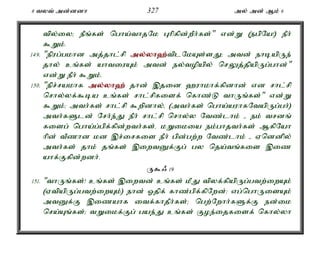 8 வலவ் அன்னனா 327 அல் அன் ஆம் 6
வில்லை; நீங்கள் பொய்வாதமே புரிகின்றீர்கள்" என்று (நபியே!) நீர்
கூறும்.
149. "நிரப்பமான அத்தாட்சி அல்லாஹ்விடமேயுள்ளது; அவன் நாடியிருந்
தால் உங்கள் யாவரையும் அவன் நல்வழியில் செலுத்தியிருப்பான்"
என்று நீர் கூறும்.
150. "நிச்சயமாக அல்லாஹ் தான் இதனை ஹராமாக்கினான் என சாட்சி
சொல்லக்கூடிய உங்கள் சாட்சிகளைக் கொண்டு வாருங்கள்" என்று
கூறும்; அவர்கள் சாட்சி கூறினால், (அவர்கள் பொய்யராகவேயிருப்பர்)
அவர்களுடன் சேர்ந்து நீர் சாட்சி சொல்ல வேண்டாம் - நம் வசனங்
களைப் பொய்ப்பிக்கின்றவர்கள், மறுமையை நம்பாதவர்கள் ஆகியோ
ரின் வீணான மன இச்சைகளை நீர் பின்பற்ற வேண்டாம் - ஏனெனில்
அவர்கள் தாம் தங்கள் இறைவனுக்குப் பல தெய்வங்களை இணை
யாக்குகின்றனர்.
ருகூஃ 19
151. "வாருங்கள்! உங்கள் இறைவன் உங்கள் மீது விலக்கியிருப்பவற்றையும்
(ஏவியிருப்பவற்றையும்) நான் ஓதிக் காண்பிக்கிறேன்; எப்பொருளையும்
அவனுக்கு இணையாக வைக்காதீர்கள்; பெற்றோர்களுக்கு நன்மை
செய்யுங்கள்; வறுமைக்குப் பயந்து உங்கள் குழந்தைகளைக் கொல்லா